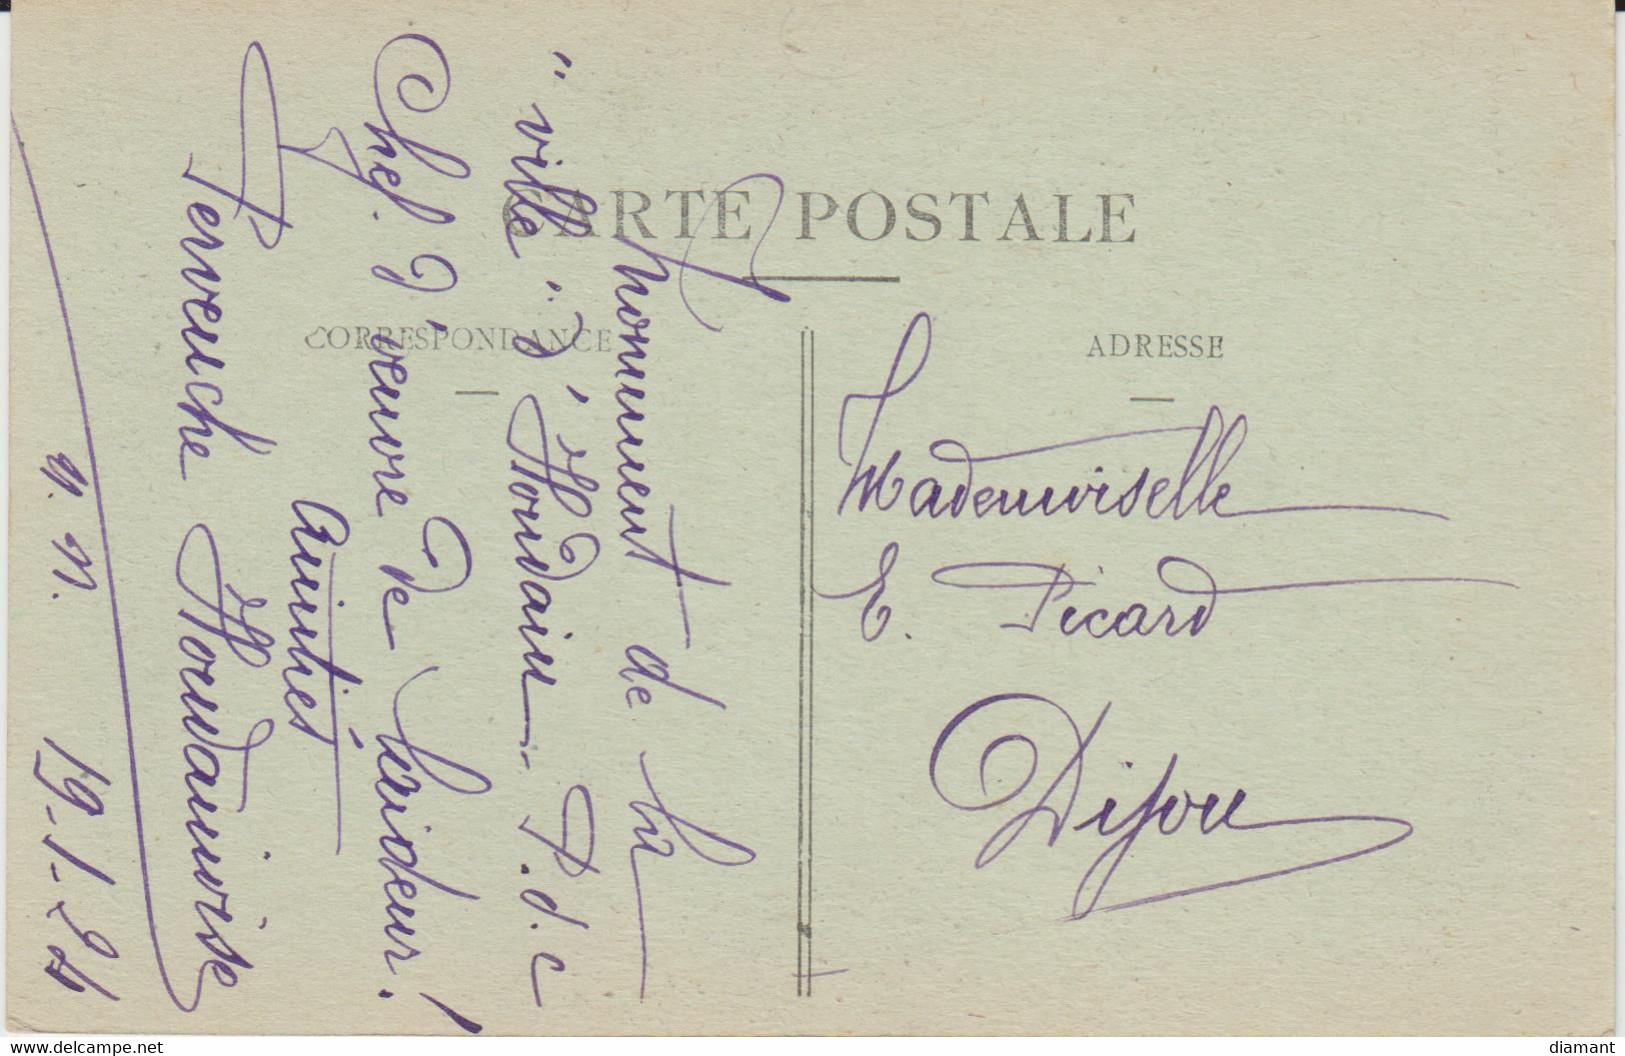 CARTE POSTALE
CORRESPONDANCE
ADRESSE
Monument de la
"ville" d'Houdain P.d.c
Chef d'oeuvre de laideur!
Amitiés
Pervenche Houdainoise
n. n. 19-1-24
Mademoiselle
E. Picard
Dijon
www.delcampe.net
diamant